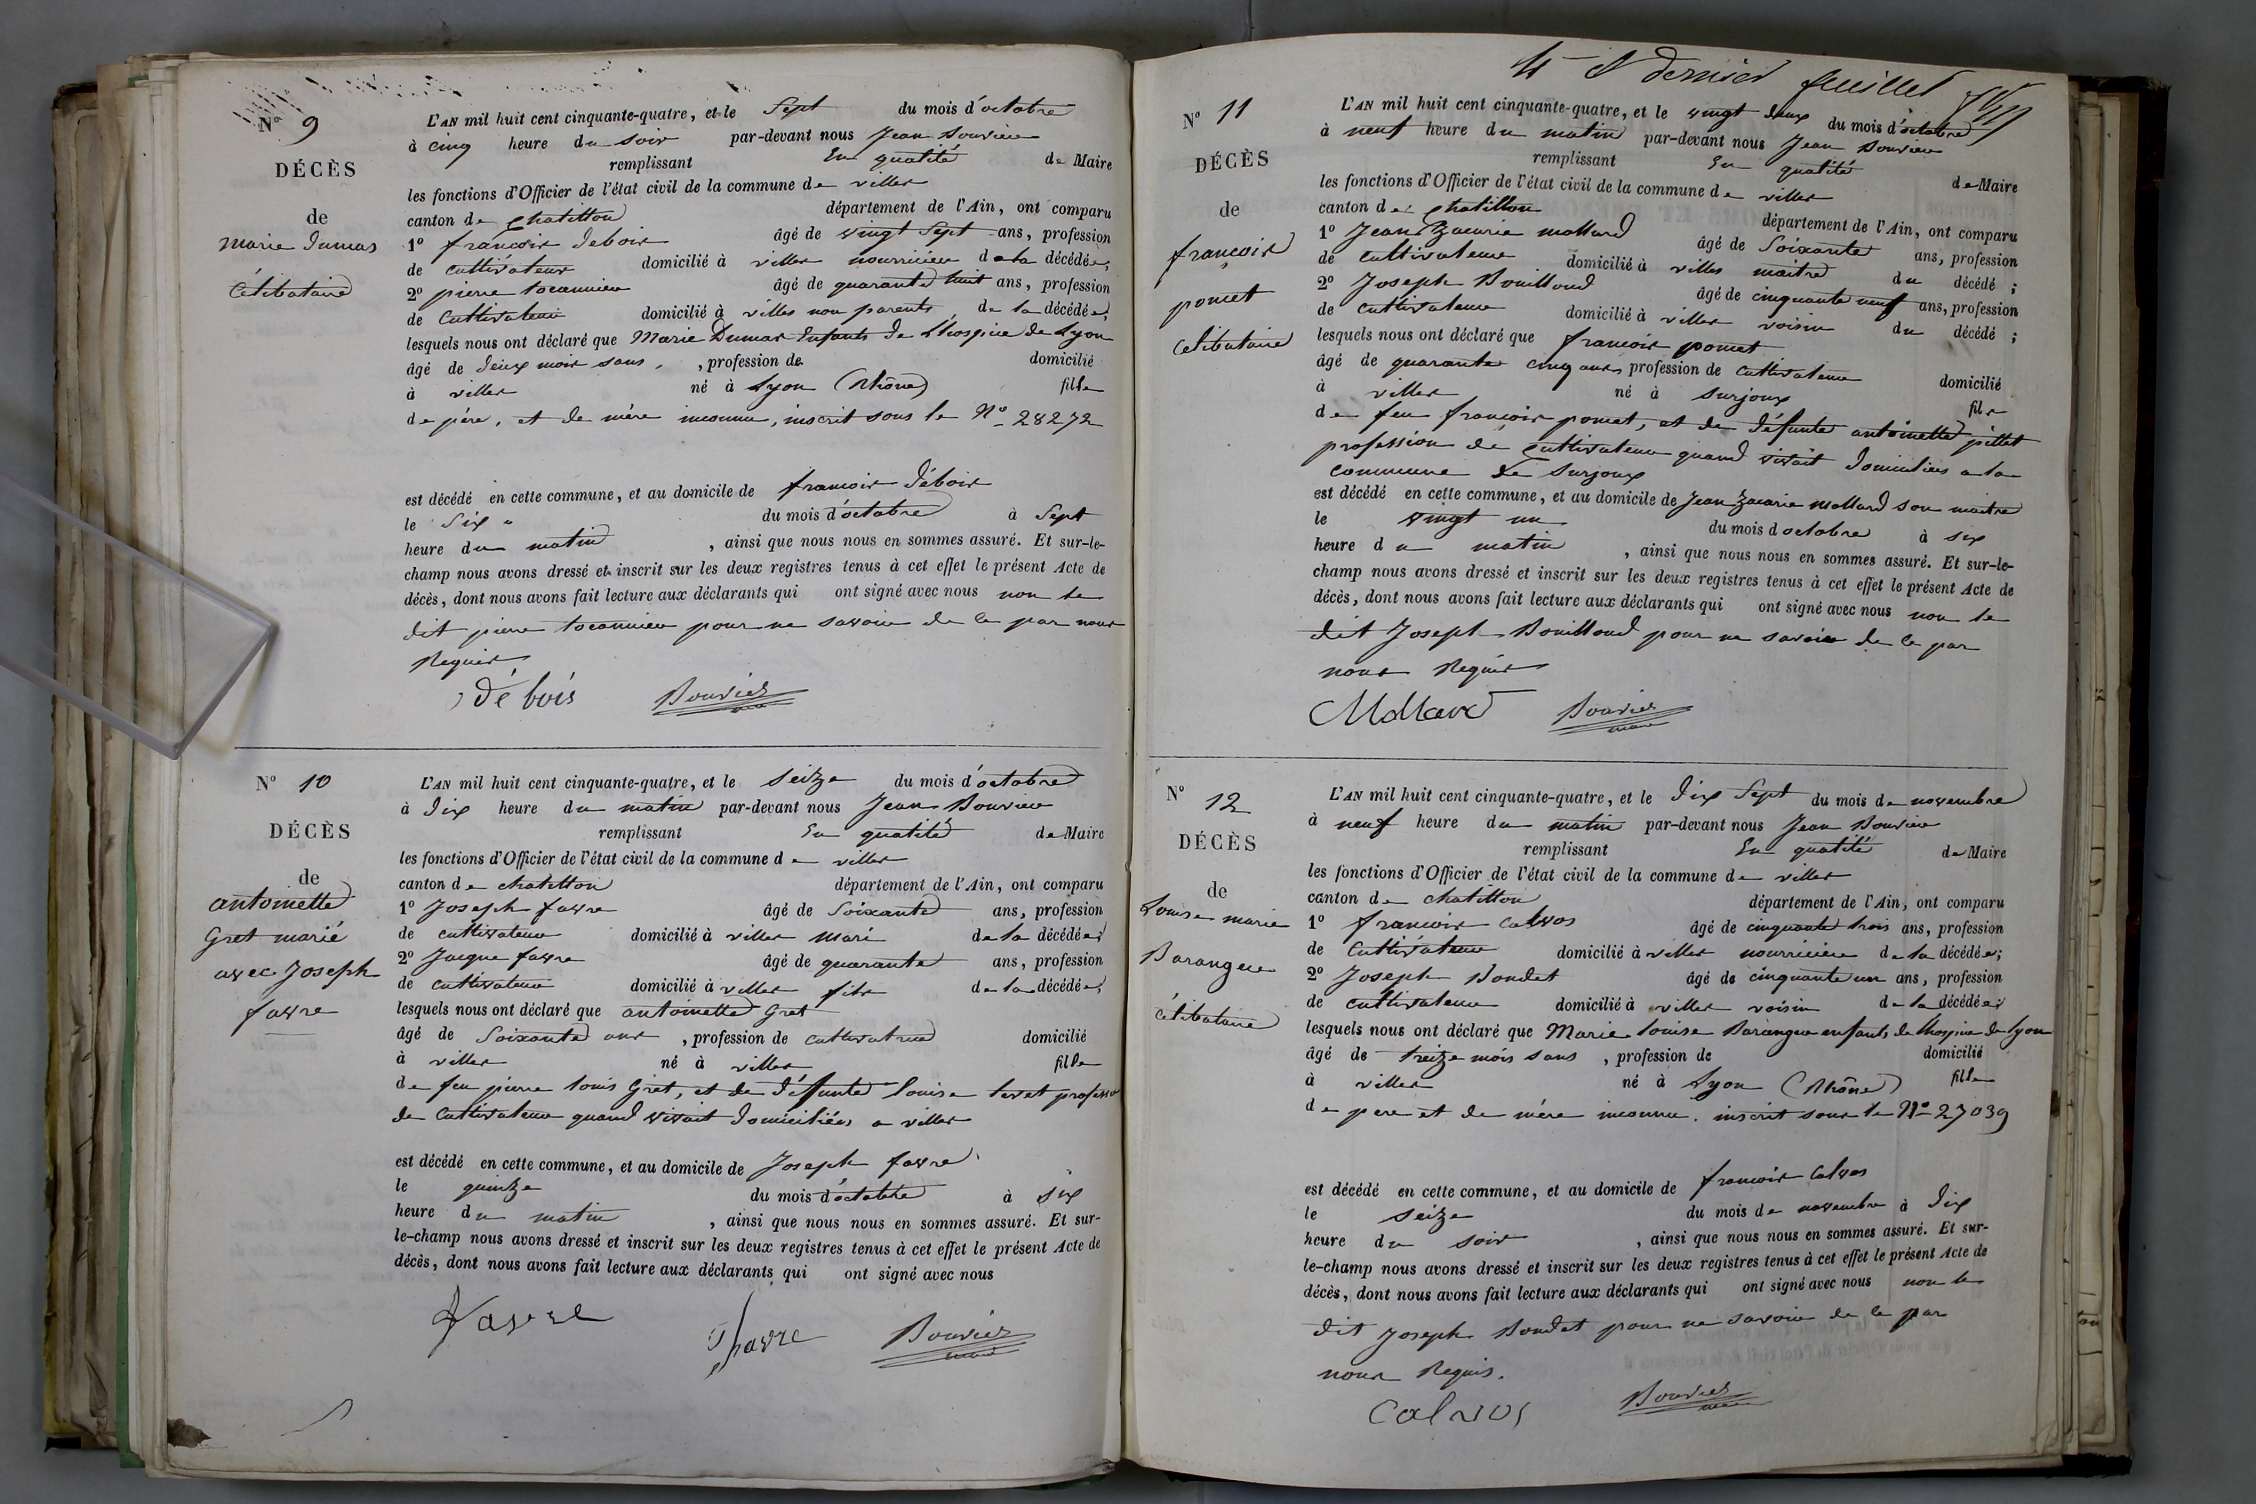 Nº 9
DÉCÈS
de
marie Dumas
Célibataire
L'AN mil huit cent cinquante-quatre, et le Sept du mois d'octobre
à cinq heure du soir par-devant nous Jean Bouvier
remplissant En qualité de Maire
les fonctions d'Officier de l'état civil de la commune de villes
canton de chatillon département de l'Ain, ont comparu
1º françois Debois âgé de vingt Sept ans, profession
de cultivateur domicilié à villes nourricier de la décédée;
2º pierre tocannier âgé de quarante huit ans, profession
de Cultivateur domicilié à villes non parents de la décédée;
lesquels nous ont déclaré que Marie Dumas Enfants de L'hospice de Lyon
âgé de Deux mois sans , profession de domicilié
à villes né à Lyon (Rhône) fille
de père, et de mère inconnu, inscrit sous le Nº 28272
est décédé en cette commune, et au domicile de françois Débois
le Six du mois d'octobre à Sept
heure du matin , ainsi que nous nous en sommes assuré. Et sur-le-
champ nous avons dressé et inscrit sur les deux registres tenus à cet effet le présent Acte de
décès, dont nous avons fait lecture aux déclarants qui ont signé avec nous non le
dit pierre tocannier pour ne savoir de ce par nous
Requis
débois Bouvier
Nº 10
DÉCÈS
de
antoinette
Gret marié
avec Joseph
favre
L'AN mil huit cent cinquante-quatre, et le seize du mois d'octobre
à Dix heure du matin par-devant nous Jean Bouvier
remplissant En qualité de Maire
les fonctions d'Officier de l'état civil de la commune de villes
canton de chatillon département de l'Ain, ont comparu
1º Joseph favre âgé de Soixante ans, profession
de cultivateur domicilié à villes Mari de la décédée;
2º Jacque favre âgé de quarante ans, profession
de cultivateur domicilié à villes fils de la décédée;
lesquels nous ont déclaré que antoinette Gret
âgé de Soixante ans , profession de cultivatrice domicilié
à villes né à villes fille
de feu pierre louis Gret, et de Défunte louise profession
de Cultivateur quand vivait Domiciliés a villes
est décédé en cette commune, et au domicile de Joseph favre
le quinze du mois d'octobre à six
heure du matin , ainsi que nous nous en sommes assuré. Et sur-
le-champ nous avons dressé et inscrit sur les deux registres tenus à cet effet le présent Acte de
décès, dont nous avons fait lecture aux déclarants qui ont signé avec nous
favre favre Bouvier
4 et dernier feuillet
Nº 11
DÉCÈS
de
françois
ponet
Célibataire
L'AN mil huit cent cinquante-quatre, et le vingt deux du mois d'octobre
à neuf heure du matin par-devant nous Jean Bouvier
remplissant En qualité de Maire
les fonctions d'Officier de l'état civil de la commune de villes
canton de chatillon département de l'Ain, ont comparu
1º Jean Zacarie mollard âgé de Soixante ans, profession
de cultivateur domicilié à villes maitre du décédé ;
2º Joseph Bouilloud âgé de cinquante neuf ans, profession
de cultivateur domicilié à villes voisin du décédé ;
lesquels nous ont déclaré que françois ponet
âgé de quarante cinq ans, profession de cultivateur domicilié
à villes né à surjoux fils
de feu françois ponet, et de défunte antoinette pillet
profession de cultivateur quand vivait Domiciliés a la
commune de Surjoux
est décédé en cette commune, et au domicile de Jean Zacarie mollard son maitre
le vingt un du mois d octobre à six
heure du matin , ainsi que nous nous en sommes assuré. Et sur-le-
champ nous avons dressé et inscrit sur les deux registres tenus à cet effet le présent Acte de
décès, dont nous avons fait lecture aux déclarants qui ont signé avec nous non le
dit Joseph Bouilloud pour ne savoir de ce par
nous Requis
Mollard Bouvier
Nº 12
DÉCÈS
de
Louise marie
Barangue
célibataire
L'AN mil huit cent cinquante-quatre, et le Dix Sept du mois de novembre
à neuf heure du matin par-devant nous Jean Bouvier
remplissant En qualité de Maire
les fonctions d'Officier de l'état civil de la commune de villes
canton de chatillon département de l'Ain, ont comparu
1º françois Calvos âgé de cinquante trois ans, profession
de Cultivateur domicilié à villes nourricier de la décédée;
2º Joseph Bondet âgé de cinquante un ans, profession
de cultivateur domicilié à villes voisin de la décédée;
lesquels nous ont déclaré que Marie louise Barangue enfants de lhospice de Lyon
âgé de treize mois sans , profession de domicilié
à villes né à Lyon (Rhône) fille
de pere et de mère inconnu. inscrit sous le Nº 27039
est décédé en cette commune, et au domicile de françois Calvos
le seize du mois de novembre à Dix
heure du soir , ainsi que nous nous en sommes assuré. Et sur-
le-champ nous avons dressé et inscrit sur les deux registres tenus à cet effet le présent Acte de
décès, dont nous avons fait lecture aux déclarants qui ont signé avec nous non le
dit Joseph Bondet pour ne savoir de ce par
nous Requis.
Calvos Bouvier